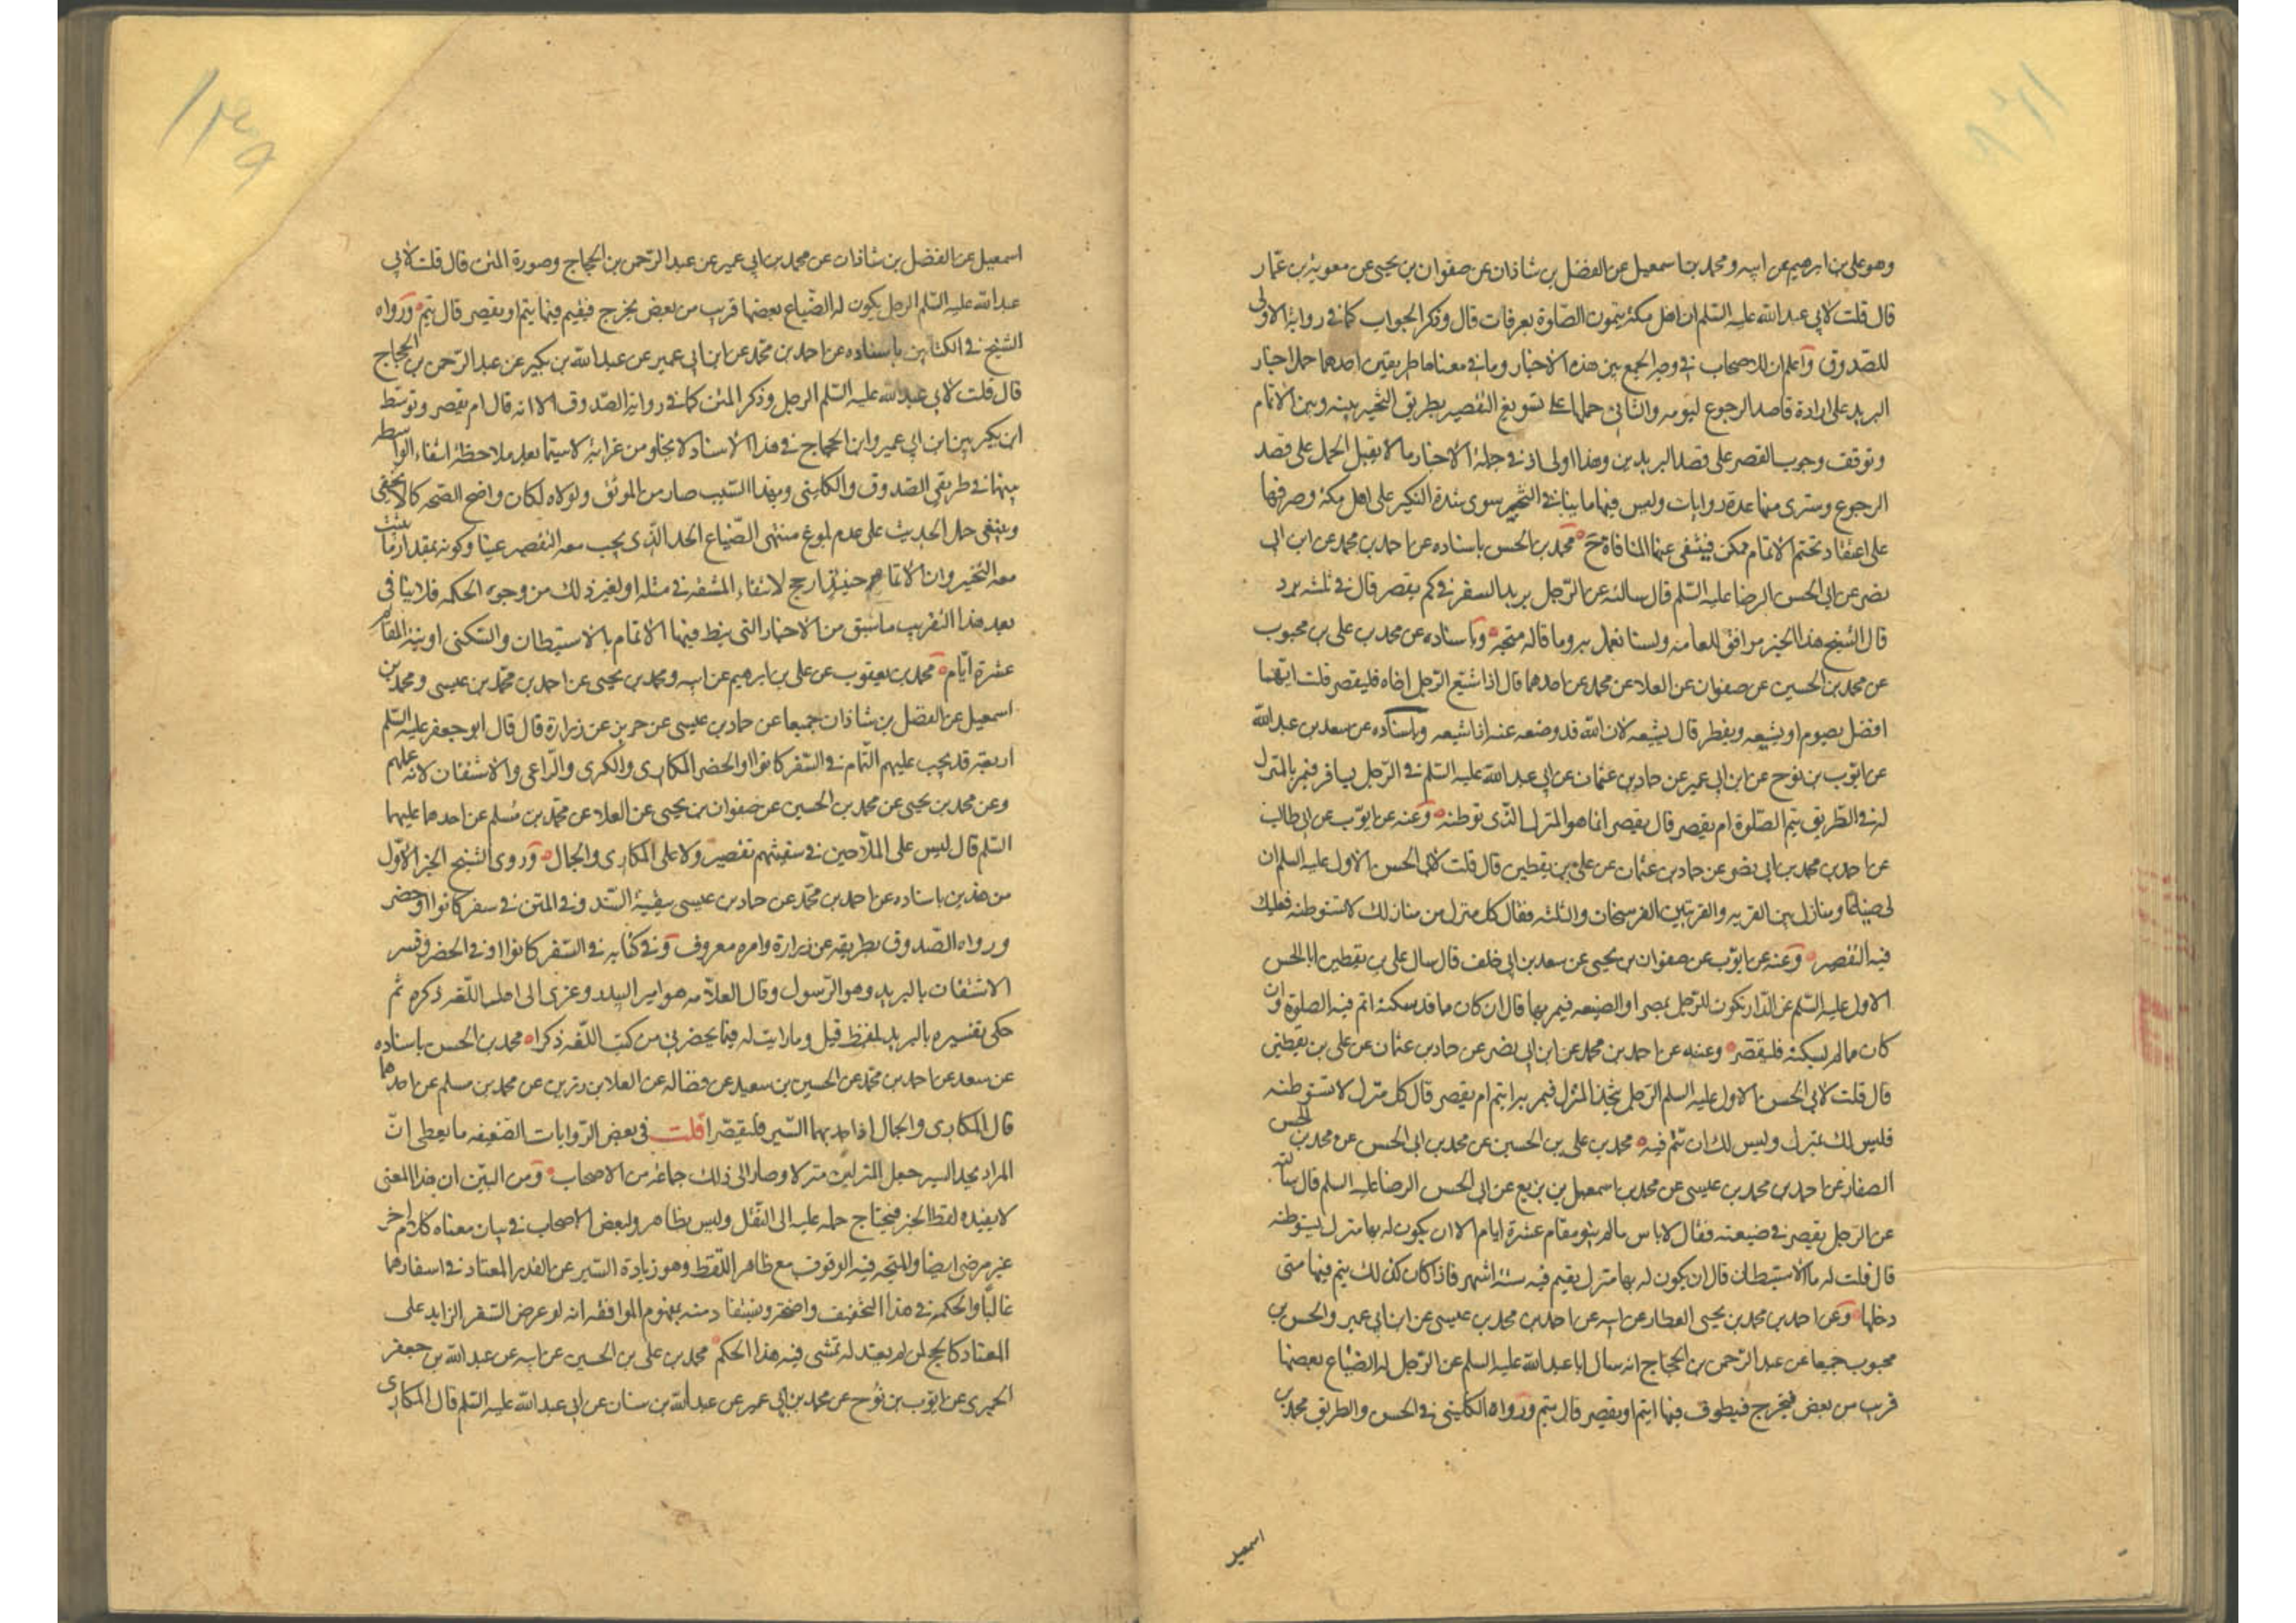 وهو علي بن ابرهيم عن ابيه ومحمد بن اسمعيل عن الفضل بن شاذان عن صفوان بن يحيى عن معوية بن عمّار
قال قلت لابي عبد الله عليه السّلم ان اهل مكة يتمّون الصّلوة بعرفات قال وذكر الجواب كما في رواية الاولى
للصّدوق واعلم ان للاصحاب في وجه الجمع بين هذه الاخبار وما في معناها طريقين احدهما حمل اخبار
البريد على ارادة قاصد الرجوع ليومه والثاني حملها على تسويغ التقصير بطريق التخيير بينه وبين الاتمام
وتوقف وجوب القصر على قصد البريدين وهذا اولى اذ في جملة الاخبار ما لا يقبل الحمل على قصد
الرجوع وسترى منها عدة روايات وليس فيها ما ينافي التخيير سوى شدة النكير على اهل مكة وصرفها
على اعتقاد تحتم الاتمام ممكن فينتفي عنها المنافاة ح محمد بن الحسن باسناده عن احمد بن محمد عن ابن ابي
نصر عن ابي الحسن الرضا عليه السّلم قال سالته عن الرّجل يريد السفر في كم يقصر قال في ثلثه برد
قال الشيخ هذا الخبر موافق للعامه ولسنا نعمل به وما قاله متجه وباسناده عن محمد بن علي بن محبوب
عن محمد بن الحسين عن صفوان عن العلا عن محمد عن احدهما قال اذا شيّع الرّجل اخاه فليقصر قلت ايّهما
افضل يصوم او يشيعه ويفطر قال يشيعه لان الله قد وضعه عنه اذا شيعه وباسناده عن سعد بن عبد الله
عن ايّوب بن نوح عن ابن ابي عمير عن حماد بن عثمان عن ابي عبد الله عليه السّلم في الرّجل يسافر فيمر بالمنزل
له في الطّريق يتم الصّلوة ام يقصر قال يقصر انما هو المنزل الّذي توطنه وعنه عن ايوّب عن ابي طالب
عن احمد بن محمد بن ابي نصر عن حماد بن عثمان عن علي بن يقطين قال قلت لابي الحسن الاول عليه السلم ان
لي ضياعا ومنازل بين القريه والقريتين الفرسخان والثلثه فقال كل منزل من منازلك لا تستوطنه فعليك
فيه التقصير وعنه عن ايوّب عن صفوان بن يحيى عن سعد بن ابي خلف قال سال علي بن يقطين ابا الحسن
الاول عليه السّلم عن الدّار تكون للرّجل بمصر او الضيعه فيمر بها قال ان كان مما قد سكنه اتم فيه الصلوة وان
كان مما لم يسكنه فليقصّر وعنه عن احمد بن محمد عن ابن ابي نصر عن حماد بن عثمان عن علي بن يقطين
قال قلت لابي الحسن الاول عليه السلم الرّجل يتخذ المنزل فيمر به ايتم ام يقصر قال كل منزل لا تستوطنه
فليس لك بمنزل وليس لك ان تتم فيه محمد بن علي بن الحسين عن محمد بن ابي الحسن عن محمد بن الحسن
الصفار عن احمد بن محمد بن عيسى عن محمد بن اسمعيل بن بزيع عن ابي الحسن الرضا عليه السلم قال سالته
عن الرّجل يقصر في ضيعته فقال لا باس ما لم ينو مقام عشرة ايام الا ان يكون له بها منزل يستوطنه
قال قلت له ما الاستيطان قال ان يكون له بها منزل يقيم فيه ستة اشهر فاذا كان كذلك يتم فيها متى
دخلها وعن احمد بن محمد بن يحيى العطار عن ابيه عن احمد بن محمد بن عيسى عن ابن ابي عمير والحسن بن
محبوب جميعا عن عبد الرّحمن بن الحجّاج انه سال ابا عبد الله عليه السلم عن الرّجل له الضّياع بعضها
قريب من بعض فيخرج فيطوف فيها ايتم او يقصر قال يتم ورواه الكليني في الحسن والطريق محمد بن
اسمعيل
۱۳۹
اسمعيل عن الفضل بن شاذان عن محمد بن ابي عمير عن عبد الرّحمن بن الحجّاج وصورة المتن قال قلت لابي
عبد الله عليه السّلم الرجل يكون له الضّياع بعضها قريب من بعض يخرج فيقيم فيها يتم او يقصر قال يتم ورواه
الشيخ في الكتابين باسناده عن احمد بن محمّد عن ابن ابي عمير عن عبد الله بن بكير عن عبد الرّحمن بن الحجاج
قال قلت لابي عبد الله عليه السّلم الرجل وذكر المتن كما في رواية الصّدوق الا انه قال ام يقصر وتوسّط
ابن بكير بين ابن ابي عمير وابن الحجاج في هذا الاسناد لا يخلو من غرابة لا سيّما بعد ملاحظة انتفاء الواسطه
بينهما في طريقي الصّدوق والكليني وبهذا السّبب صار من الموثق ولولاه لكان واضح الصّحه كما لا يخفى
وينبغي حمل الحديث على عدم بلوغ منتهى الضّياع الحد الّذي يجب معه التقصير عينا وكونه بمقدار ما يثبت
معه التخيير وان الاتمام حينئذ ارجح لانتفاء المشقه في مثله او لغير ذلك من وجوه الحكمه فلا ينافي
بعد هذا التقريب ما سبق من الاخبار التي ينط فيها الاتمام بالاستيطان والسّكنى او بنية المقام
عشرة ايّام محمد بن يعقوب عن علي بن ابرهيم عن ابيه ومحمد بن يحيى عن احمد بن محمّد بن عيسى ومحمد بن
اسمعيل عن الفضل بن شاذان جميعا عن حماد بن عيسى عن حريز عن زرارة قال قال ابو جعفر عليه السّلم
اربعة قد يجب عليهم التّمام في السّفر كانوا او الحضر المكاري والكري والرّاعي والاشتقان لانه عملهم
وعن محمد بن يحيى عن محمد بن الحسين عن صفوان بن يحيى عن العلا عن محمّد بن مسلم عن احدهما عليهما
السّلم قال ليس على الملّاحين في سفينتهم تقصير ولا على المكاري والجمال وروى الشيخ الخبر الاوّل
من هذين باسناده عن احمد بن محمّد عن حماد بن عيسى ببقيّة السّند وفي المتن في سفر كانوا او حضر
ورواه الصّدوق بطريقه عن زرارة وامره معروف وفي كتابه في السّفر كانوا او في الحضر وفسر
الاشتقان بالبريد وهو الرّسول وقال العلّامه هو امير البيدر وعزى الى اهل اللّغه ذكره ثم
حكى تفسيره بالبريد بلفظ قيل وما رايت له فيما يحضرني من كتب اللّغه ذكرا محمد بن الحسن باسناده
عن سعد عن احمد بن محمّد عن الحسين بن سعيد عن فضاله عن العلا بن رزين عن محمد بن مسلم عن احدهما
قال المكاري والجمال اذا جد بهما السّير فليقصّرا قلت في بعض الرّوايات الضعيفه ما يعطى انّ
المراد بجد السير جعل المنزلين منزلا وصار الى ذلك جماعة من الاصحاب ومن البيّن ان هذا المعنى
لا يفيده لفظ الخبر فيحتاج حمله عليه الى النّقل وليس بظاهر ولبعض الاصحاب في بيان معناه كلام اخر
غير مرضى ايضا والمتجه فيه الوقوف مع ظاهر اللّفظ وهو زيادة السّير عن القدر المعتاد في اسفارهما
غالبا والحكمة في هذا التخفيف واضحة ويستفاد منه بمفهوم الموافقه انه لو عرض السّفر الزايد على
المعتاد كالحج لمن لم يعتد له تمشى فيه هذا الحكم محمد بن علي بن الحسين عن ابيه عن عبد الله بن جعفر
الحميري عن ايوّب بن نوح عن محمد بن ابي عمير عن عبد الله بن سنان عن ابي عبد الله عليه السّلم قال المكاري